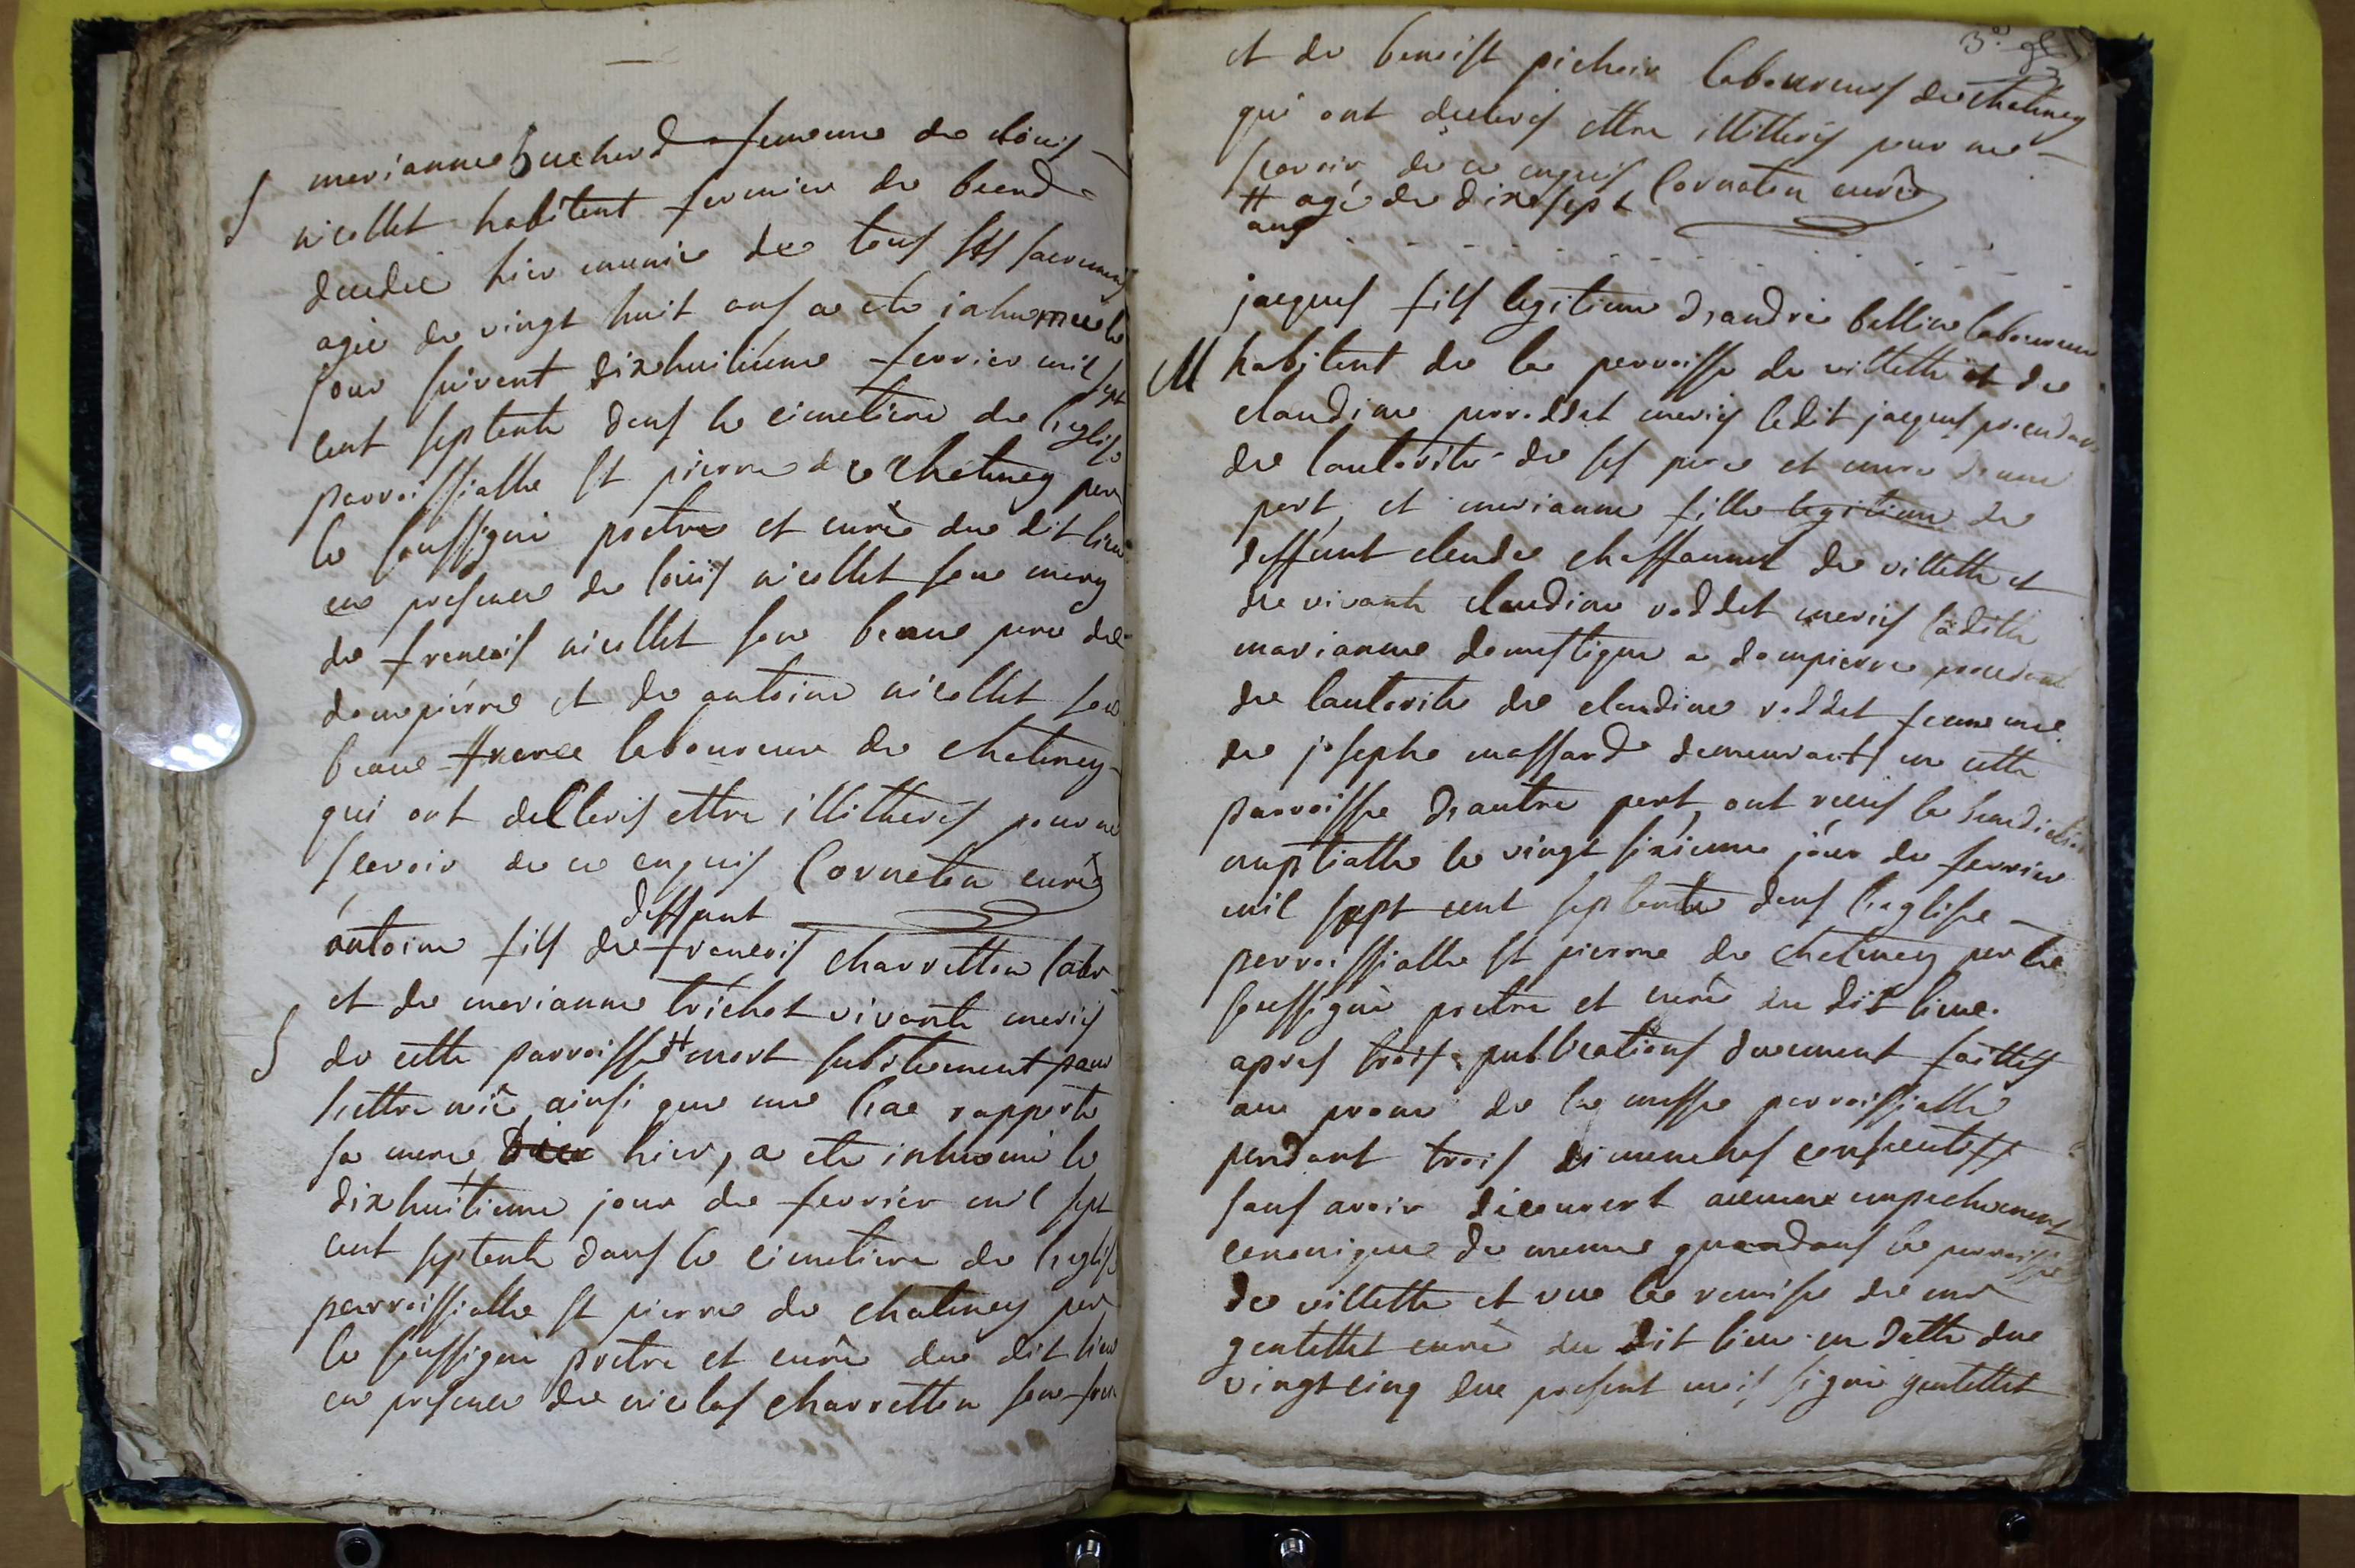 marianne buchard femme de loüis
nicollet habitant fermier de
decedée hier munie de tous ses sacremens
agée de vingt huit ans a ete inhumée le
jour suivant dixhuitiéme fevrier mil sept
cent septente dans le cimetiere de l'eglise
parroissialle st pierre de chatenay par
le soussigné pretre et curé du dit lieu
en presence de loüis nicollet son mary
de francois nicollet son beau pere de
dompiérre et de antoine nicollet son
beau frere laboureur de chatenay
qui ont declleris ettre illitterés pour ne
scavoir de ce enquis Cornaton curé
deffunt
antoine fils de francois charretton labr
et de marianne trichot vivante mariés
de cette parroisse # mort subitement pour
s'ettre nié, ainsi que me l'ae rapporté
sa mere hier, a ete inhumé le
dixhuitieme jour de fevrier mil sept
cent septente dans le cimetiere de l'eglise
parroissialle st pierre de chatenay par
le soussigné pretre et curé du dit lieu
en presence de nicolas charretton son frere
3e
et de benoist pichoir laboureurs de chatenay
qui ont declerés ettre illitterés pour ne
scavoir de ce enquis Cornaton curé
# agé de dixsept
ans
jacques fils legitime d'andré bellin laboureur
M habitent de la parroisse de villette et de
claudine perroddet mariés ledit jacques procedant
de lautorité de ses pere et mere d'une
part, et marianne fille legitime de
deffunt claude chaffannel de villette et
de vivante claudine roddet mariés laditte
marianne domestique a dompierre procedant
de lautorité de claudine roddet femme
de josephe massard demeurants en cette
parroisse d'autre part, ont receus la benediction
nuptialle le vingt sixiemme jóur de fevrier
mil sept cent septente dans l'eglise
parroissialle st pierre de chatenay par le
soussigné pretre et curé du dit lieu.
apres trois publications duement faittes
au prone de la messe parroissialle
pendant trois dimanches consecutifs
sans avoir décourert aucune empechement
canonique de meme que dans la parroisse
de villette et vue la remise de mr
gentellet curé du dit lieu en datte du
vingt cinq du present mois signé gentellet